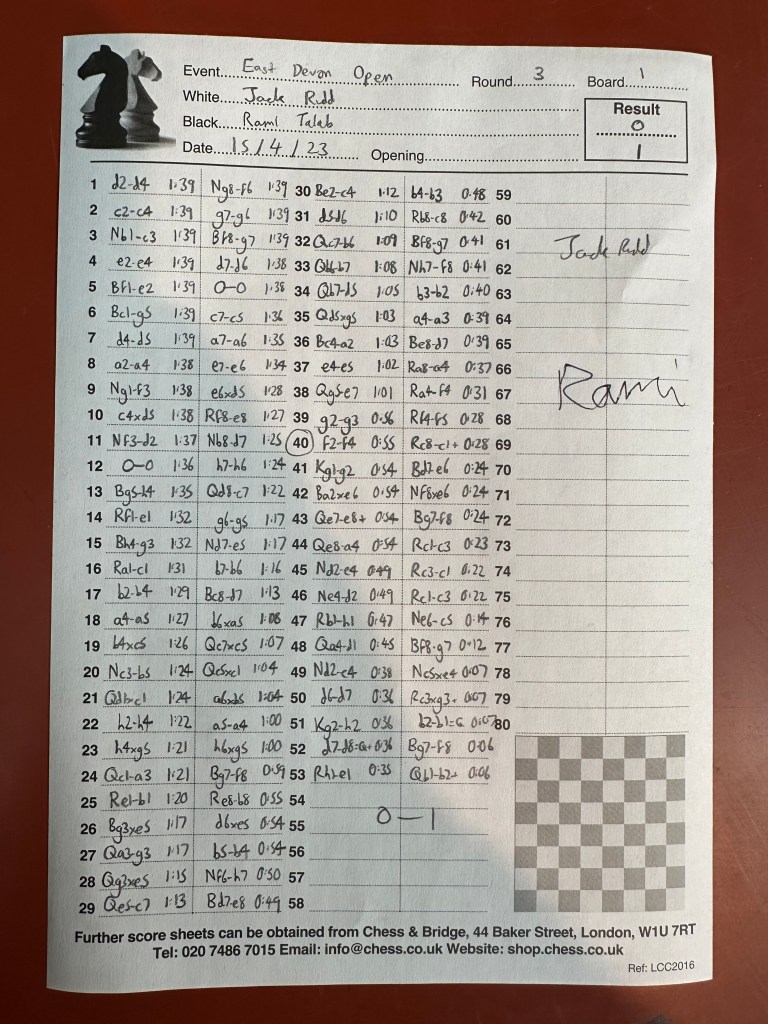 Event East Devon Open Round 3 Board 1
White Jack Rudd
Result
Black Rami Talab
0
Date 15/4/23 Opening
1
1 d2-d4 1·39 Ng8-f6 1·39 30 Be2-c4 1:12 b4-b3 0:48 59
2 c2-c4 1:39 g7-g6 1:39 31 d5d6 1:10 Rb8-c8 0:42 60
3 Nb1-c3 1:39 Bf8-g7 1:39 32 Qc7-b6 1:09 Bf8-g7 0:41 61
Jack Rudd
4 e2-e4 1:39 d7-d6 1:38 33 Qb6-b7 1:08 Nh7-f8 0:41 62
5 Bf1-e2 1:39 0-0 1:38 34 Qb7-d5 1:05 b3-b2 0:40 63
6 Bc1-g5 1:39 c7-c5 1:36 35 Qd5xg5 1:03 a4-a3 0:39 64
7 d4-d5 1:39 a7-a6 1:35 36 Bc4-a2 1:03 Be8-d7 0:39 65
8 a2-a4 1:38 e7-e6 1:34 37 e4-e5 1:02 Ra8-a4 0:37 66
9 Ng1-f3 1:38 e6xd5 1:28 38 Qg5-e7 1:01 Ra4-f4 0:31 67
Rami
10 c4xd5 1:38 Rf8-e8 1:27 39 g2-g3 0:56 Rf4-f5 0:28 68
11 Nf3-d2 1:37 Nb8-d7 1:25 40 f2-f4 0:55 Rc8-c1+ 0:28 69
12 0-0 1:36 h7-h6 1:24 41 Kg1-g2 0:54 Bd7-e6 0:24 70
13 Bg5-h4 1:35 Qd8-c7 1:22 42 Ba2xe6 0:54 Nf8xe6 0:24 71
14 Rf1-e1 1:32 g6-g5 1:17 43 Qe7-e8+ 0:54 Bg7-f8 0:24 72
15 Bh4-g3 1:32 Nd7-e5 1:17 44 Qe8-a4 0:54 Rc1-c3 0:23 73
16 Ra1-c1 1:31 b7-b6 1:16 45 Nd2-e4 0:49 Rc3-c1 0:22 74
17 b2-b4 1:29 Bc8-d7 1:13 46 Ne4-d2 0:49 Rc1-c3 0:22 75
18 a4-a5 1:27 b6xa5 1:08 47 Rb1-h1 0:47 Ne6-c5 0:14 76
19 b4xc5 1:26 Qc7xc5 1:07 48 Qa4-d1 0:45 Bf8-g7 0:12 77
20 Nc3-b5 1:24 Qc5xc1 1:04 49 Nd2-c4 0:38 Nc5xe4 0:07 78
21 Qd1xc1 1:24 a6xb5 1:04 50 d6-d7 0:36 Rc3xg3+ 0:07 79
22 h2-h4 1:22 a5-a4 1:00 51 Kg2-h2 0:36 b2-b1=Q 0:07 80
23 h4xg5 1:21 h6xg5 1:00 52 d7-d8=Q+ 0:36 Bg7-f8 0:06
24 Qc1-a3 1:21 Bg7-f8 0:59 53 Rh1-e1 0:35 Qb1-b2+ 0:06
25 Re1-b1 1:20 Re8-b8 0:55 54
26 Bg3xe5 1:17 d6xe5 0:54 55 0-1
27 Qa3-g3 1:17 b5-b4 0:54 56
28 Qg3xe5 1:15 Nf6-h7 0:50 57
29 Qe5-c7 1:13 Bd7-e8 0:49 58
Further score sheets can be obtained from Chess & Bridge, 44 Baker Street, London, W1U 7RT
Tel: 020 7486 7015 Email: info@chess.co.uk Website: shop.chess.co.uk
Ref: LCC2016